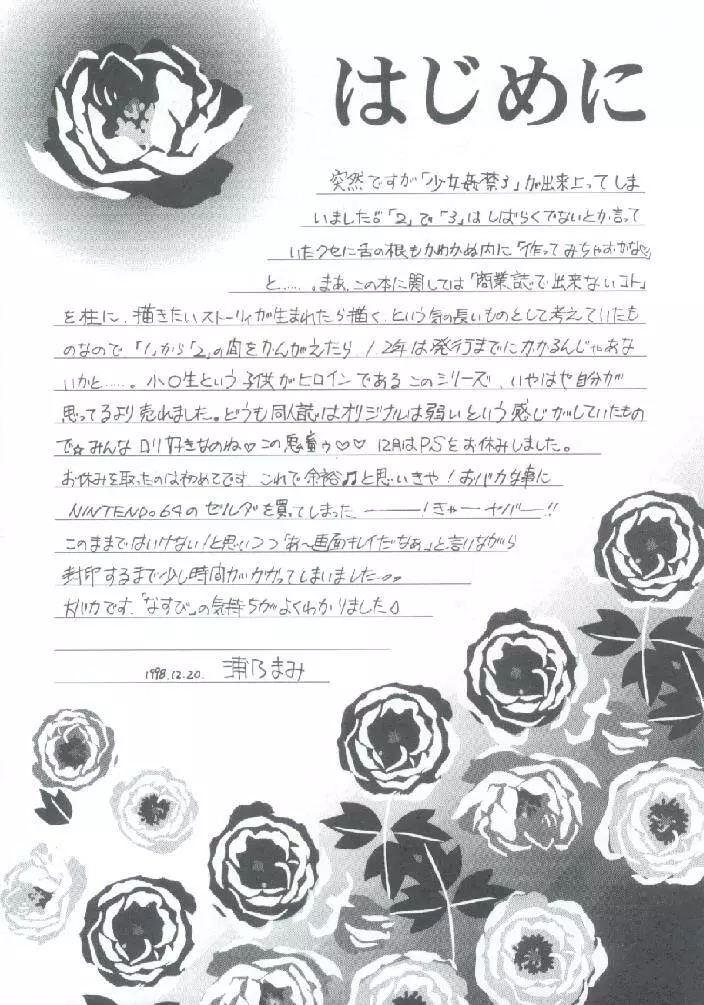 はじめに
突然ですが「少女姦禁3」が出来上ってしま
いました。「2」で「3」はしばらくでないとか言って
いたクセに舌の根もかわかぬ内に「作ってみちゃおかな♡
と……。まあ、この本に関しては「商業誌で出来ないコト」
を柱に、描きたいストーリィが生まれたら描く、という気の長いものとして考えていたも
のなので、「1」から「2」の間をかんがえたら、1、2年は発行までにかかるんじゃあな
いかと……。小○生という子供がヒロインであるこのシリーズ、いやはや自分が
思ってるより売れました。どうも同人誌はオリジナルは弱いという感じがしていたもの
で☆みんなロリ好きなのね♡この悪童ゥ♡♡ 12月はPSをお休みしました。
お休みを取ったのは初めてです これで余裕♫と思いきや!おバカな事に
NINTENDO64のゼルダを買ってしまった———!きゃーヤバー!!
このままではいけない!と思いつつ「あ〜画面キレイだなぁ」と言いながら
封印するまで少し時間がかかってしまいました。。
おバカです、「なすび」の気持ちがよくわかりました♪
1998.12.20. 浦乃まみ